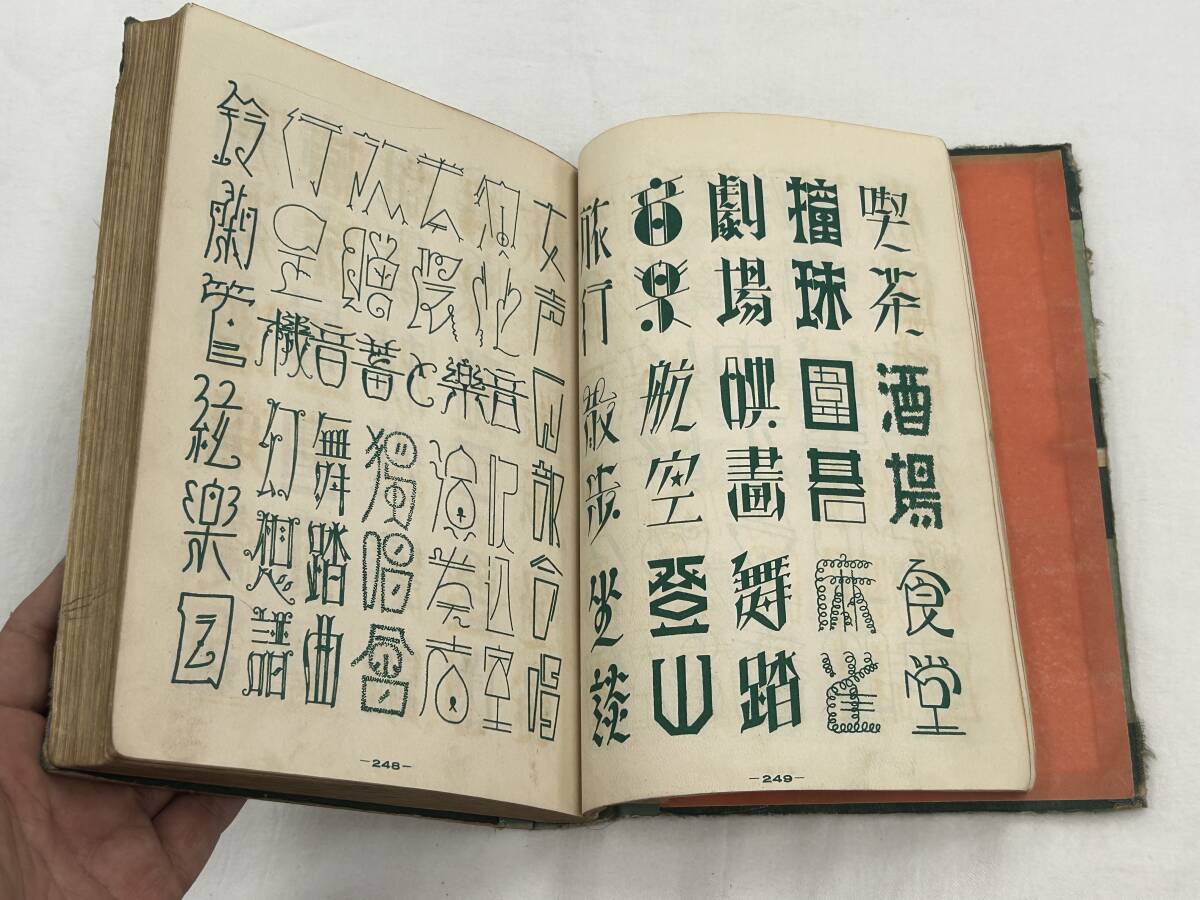 女声四部合唱
音樂と蓄音機
吹込室
演奏
獨唱會
舞踏曲
幻想譜
鈴蘭管絃楽団
—248—
喫茶
酒場
食堂
撞球
圍碁
麻雀
劇場
映畫
舞踏
音楽
航空
登山
旅行
散歩
坐談
—249—